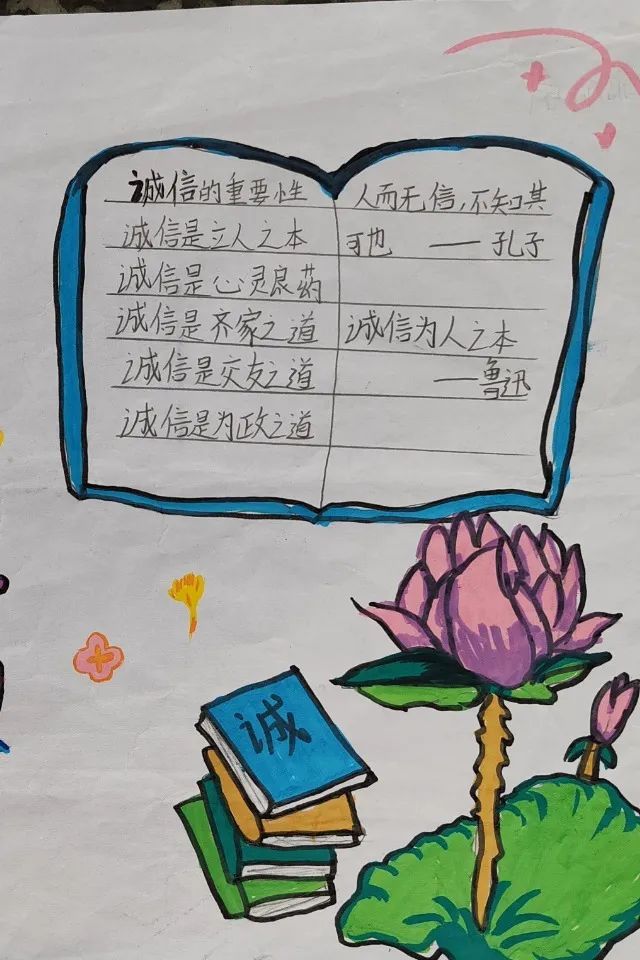 诚信的重要性
诚信是立人之本
诚信是心灵良药
诚信是齐家之道
诚信是交友之道
诚信是为政之道
人而无信,不知其
可也 — 孔子
诚信为人之本
—鲁迅
诚